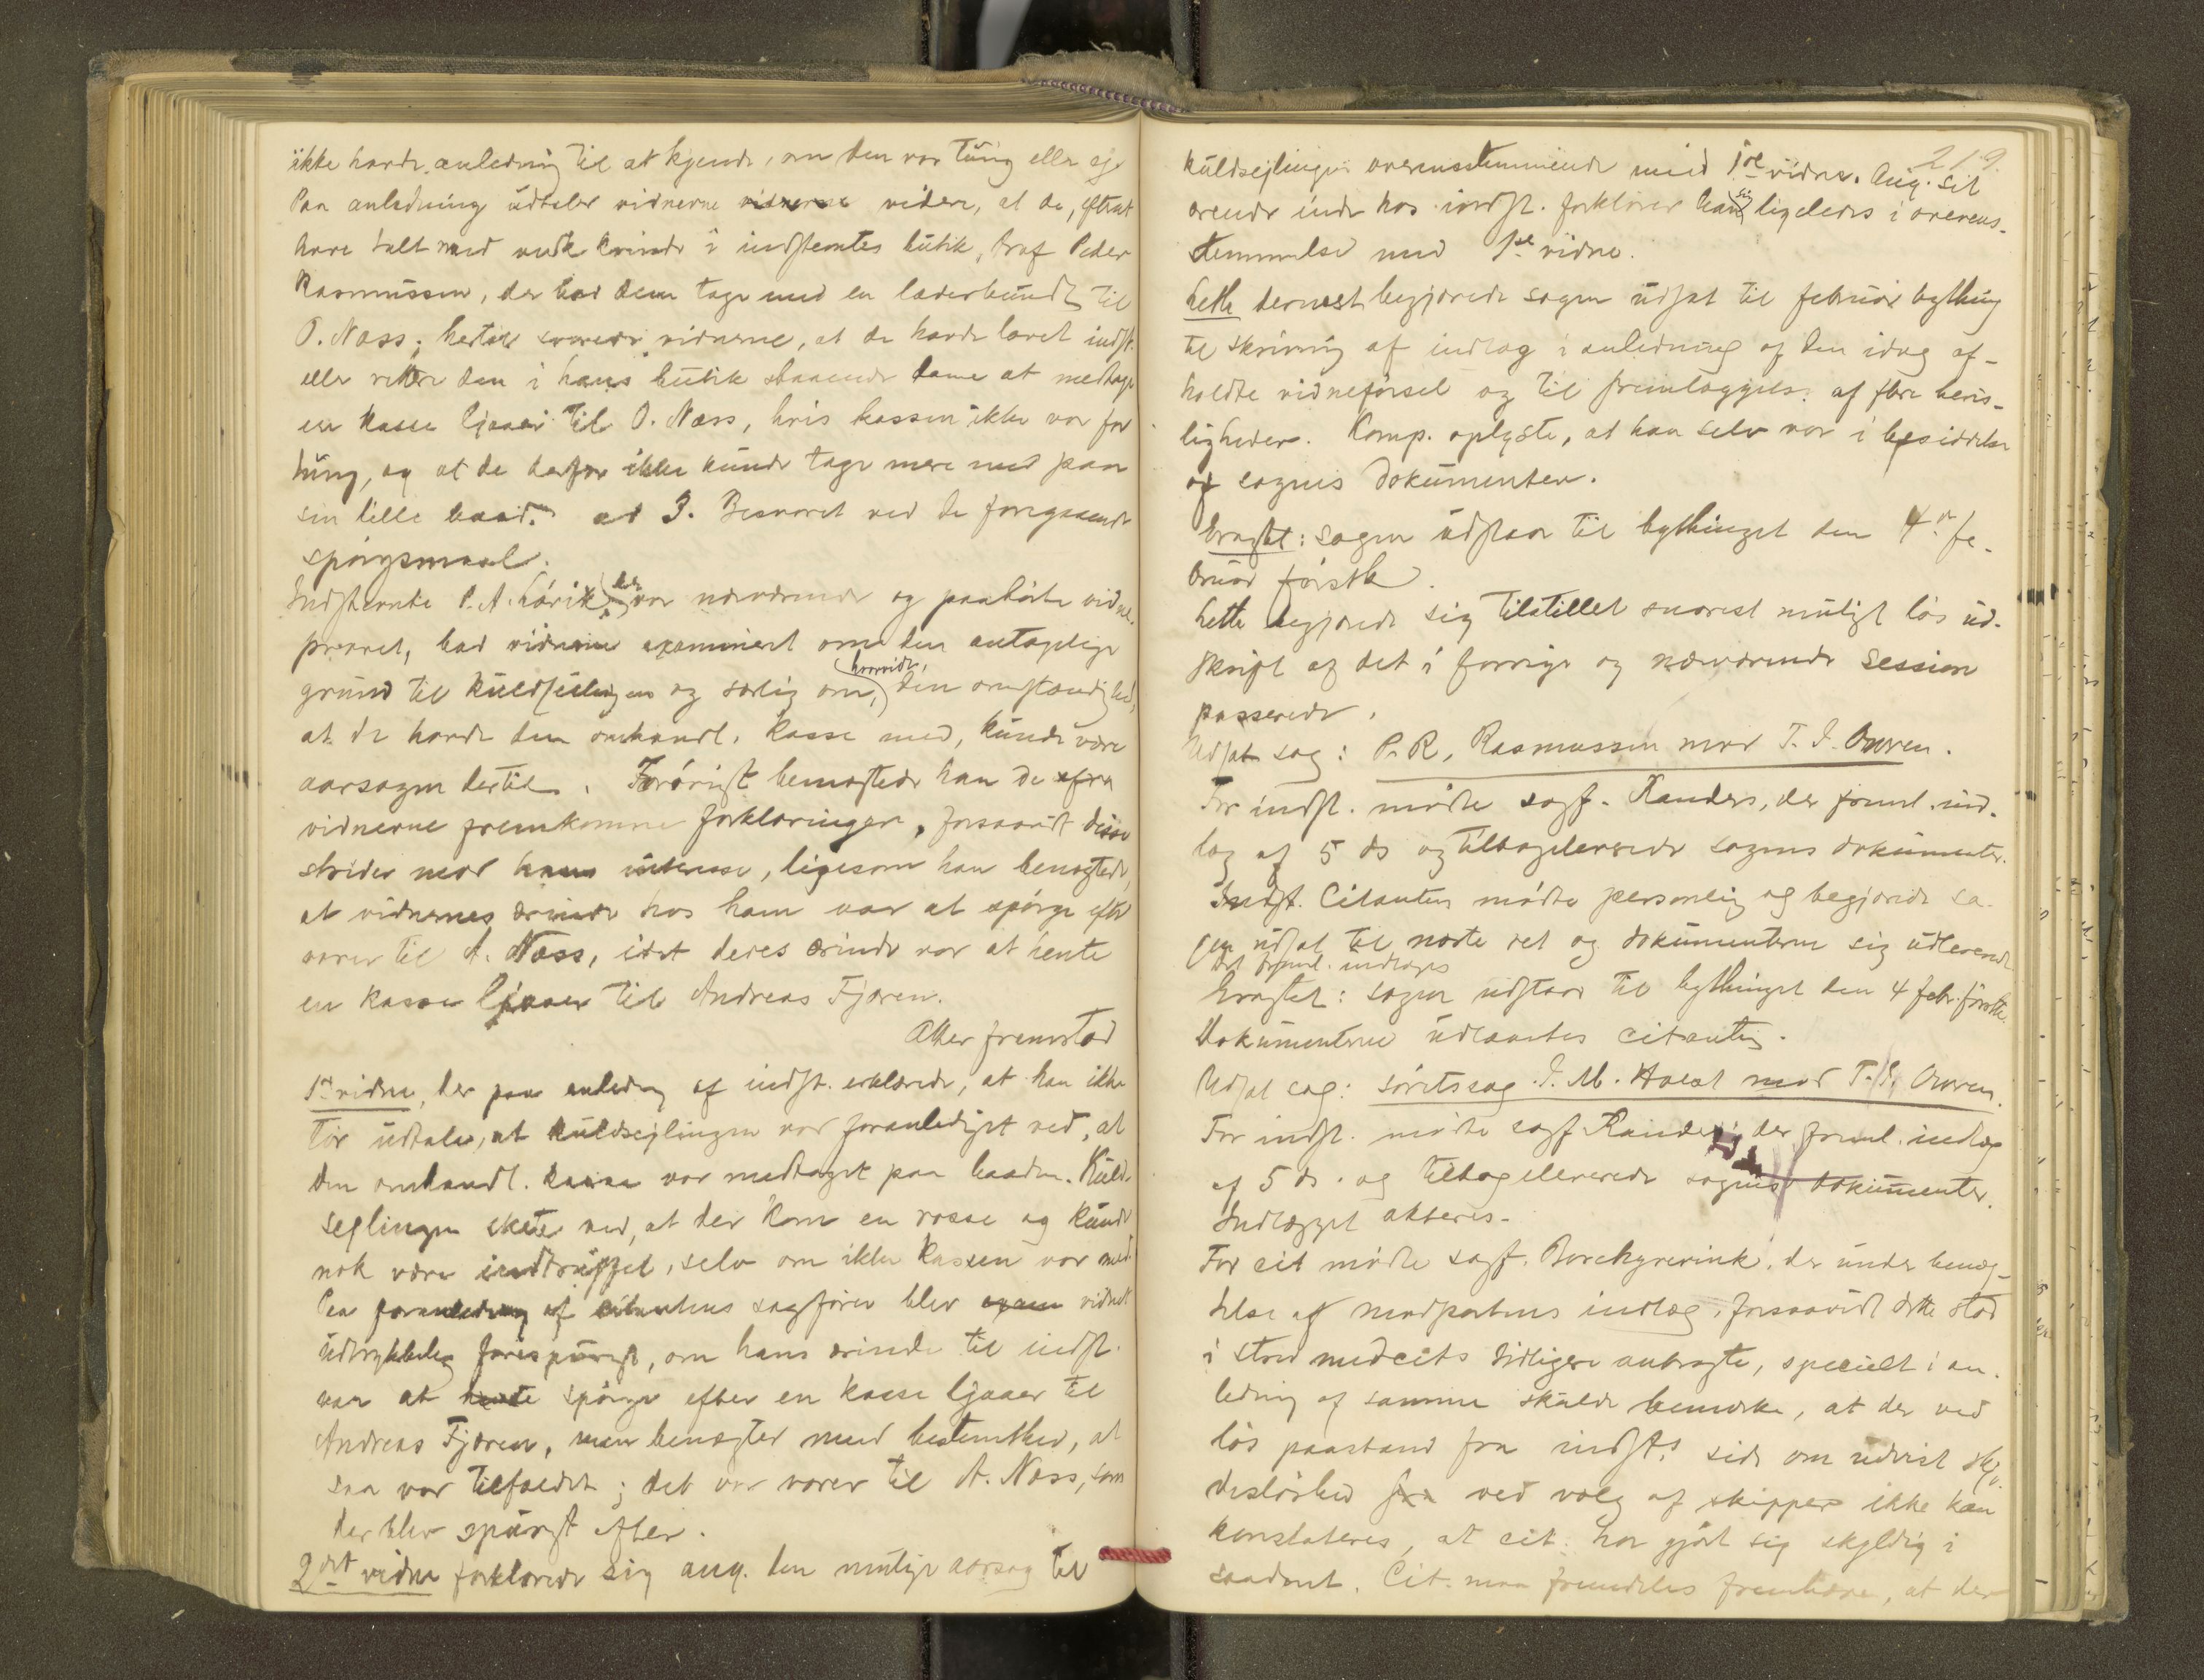 ikke havde anledning til at kjende, om den var tung eller ej.
Paa anledning udtaler vidnerne vidnerne videre, at de, efterat
have talt med vedk kvinde i indstevntes butik, traf Peder
Rasmussen, der bad dem tage med en læderbundt til
O. Næss; hertil svarede vidnerne, at de havde lovet indst.
eller rettere den i hans butik staaende dame at medtage
en kasse ljaaer til O. Næss, hvis kassen ikke var for
tung, og at de derfor ikke kunde tage mere med paa
sin lille baad. ad 3. Besvaret ved de foregaaende
spørgsmaal.
Indstevnte P. A. Lørik, der var nærværende og paahørte vidne-
prøvet, bad vidnerne examineret om den antagelige
grund til kuldseilingen og særlig om, hvorvidt, den omstændighed,
at de havde den omhandl. kasse med, kunde være
aarsagen dertil. Forøvrigt benægtede han de afra
vidnerne fremkomne forklaringer, forsaavidt disse
strider mod hans interesse, ligesom han benægtede,
at vidnernes ærinde hos ham var at spørge efter
varer til A. Næss, idet deres ærinde var at hente
en kasse ljaaer til Andreas Fjæren.
Atter fremstod
1ste vidne, der paa anledng af indst. erklærede, at han ikke
tør udtale, at kuldseilingen var foranlediget ved, at
den omhandl. kasse var medtaget paa baaden. Kuld-
sejlingen skete ved, at der kom en rosse og kunde
nok være indtruffet, selv om ikke kassen var med.
Paa foranledning af citantens sagfører blev exam vidnet
udtrykkelig forespurgt, om hans ærinde til indst.
var at hente spørge efter en kasse ljaaer til
Andreas Fjæren, men benægter med bestemthed, at
saa var tilfældet; det var varer til A. Næss, som
der blev spurgt efter.
2det vidne forklarede sig ang. den mulige aarsag til
219.
kuldsejlingen overensstemmende med 1ste vidne. Ang. sit
ærende inde hos indst. forklarer han sig ligeledes i overens-
stemmelse med 1ste vidne.
Lethe dernæst begjærede sagen udsat til februar bything
til skrivning af indlæg i anledning af den idag af-
holdte vidneførsel og til fremlæggelse af flere bevis-
ligheder. Komp. oplyste, at han selv var i besiddelse
af sagens dokumenter.
Eragtet: sagen udstaar til bythinget den 4de fe-
bruar førstk.
Lethe begjærede sig tilstillet snarest muligt løs ud-
skrift af det i forrige og nærværende session
passerede.
Udsat sag: P. R. Rasmussen mod T. J. Onren.
For indst. mødte sagf. Randers, der freml. ind-
læg af 5 ds og tilbageleverede sagens dokumenter.
Indst. Citanten mødte personlig og begjærede sa-
gen udsat til næste ret og dokumenterne sig udleveret
Det freml. indlæges
Eragtet: sagen udstaar til bythinget den 4 febr. førstk.
Dokumenterne udlaantes citanten.
Udsat sag: søretssag J. M. Hoest mod T. J. Onren.
For indst. mødte sagf. Randers der freml. indlæg
af 5 ds. og tilbageleverede sagens dokumenter.
Indlægget akteres.
For cit mødte sagf. Borchgrevink, der under benæg-
telse af modpartens indlæg, forsaavidt dette stod
i strid med cits tidligere anbragte, specielt i an-
ledning af samme skulde bemærke, at der ved
løs paastand fra indst.s side om udvist skjø-
desløshed fra ved valg af skipper ikke kan
konstateres, at cit. har gjort sig skyldig i
saadant. Cit. maa fremdeles fremhæve, at der